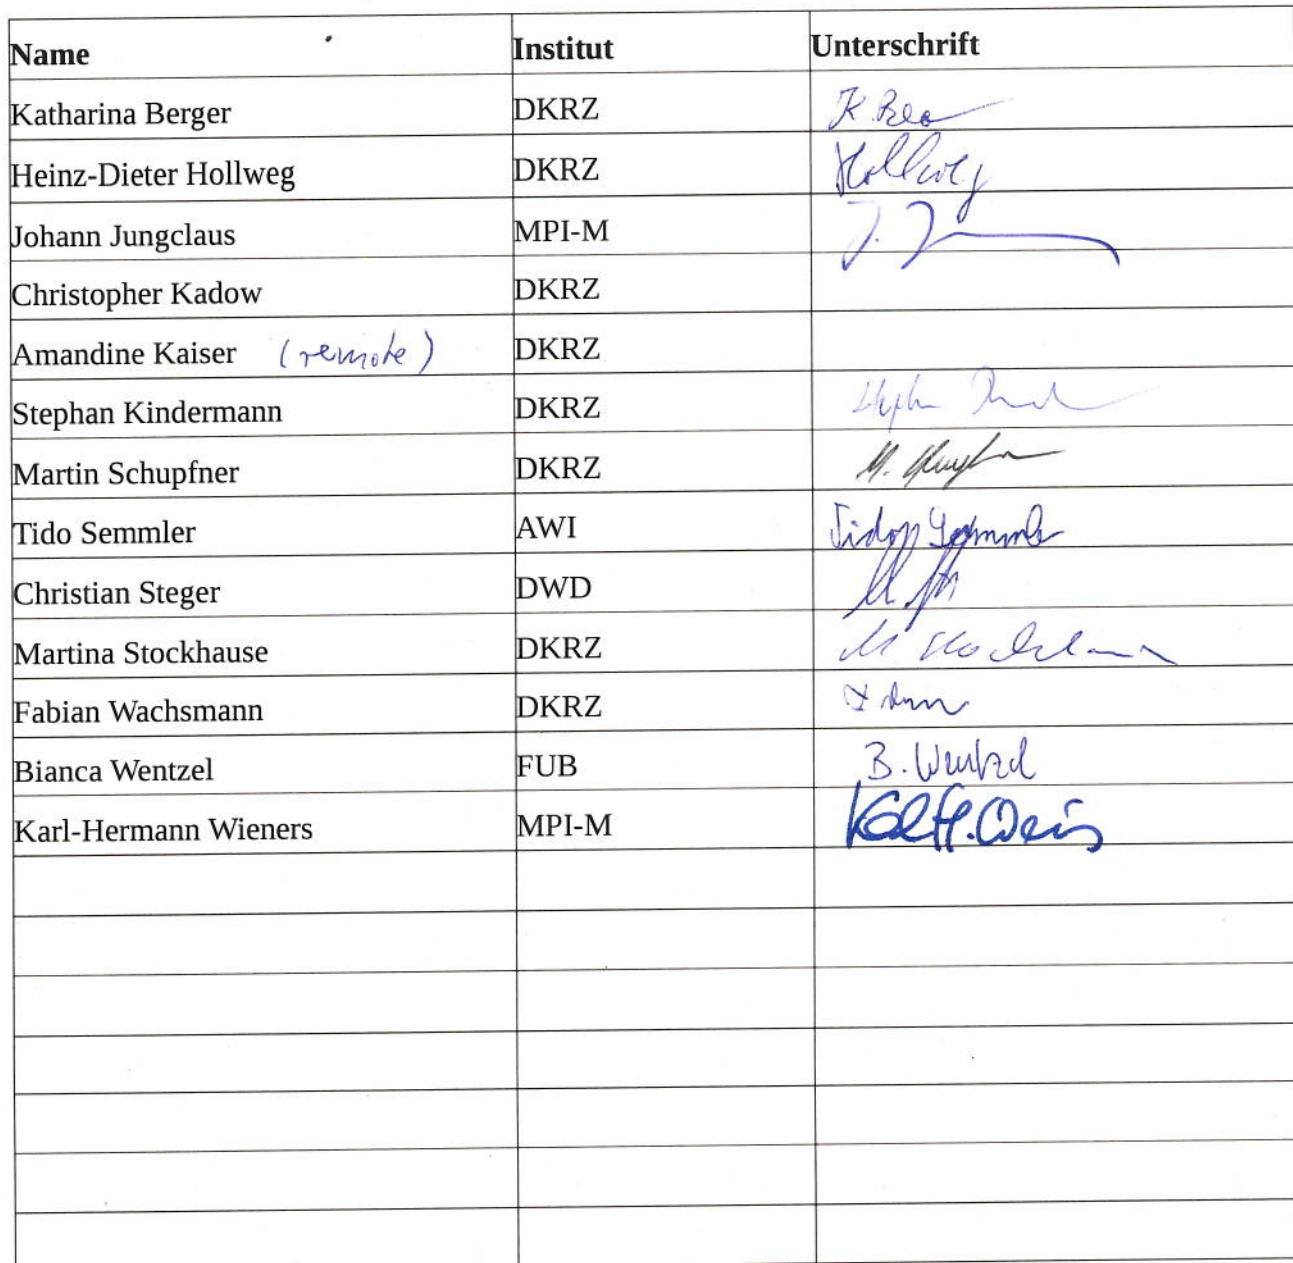 Name Institut Unterschrift
Katharina Berger DKRZ K.
Heinz-Dieter Hollweg DKRZ Hollweg
Johann Jungclaus MPI-M J.
Christopher Kadow DKRZ
Amandine Kaiser (remote) DKRZ
Stephan Kindermann DKRZ
Martin Schupfner DKRZ M.
Tido Semmler AWI Tido Semmler
Christian Steger DWD
Martina Stockhause DKRZ M
Fabian Wachsmann DKRZ
Bianca Wentzel FUB B. Wentzel
Karl-Hermann Wieners MPI-M